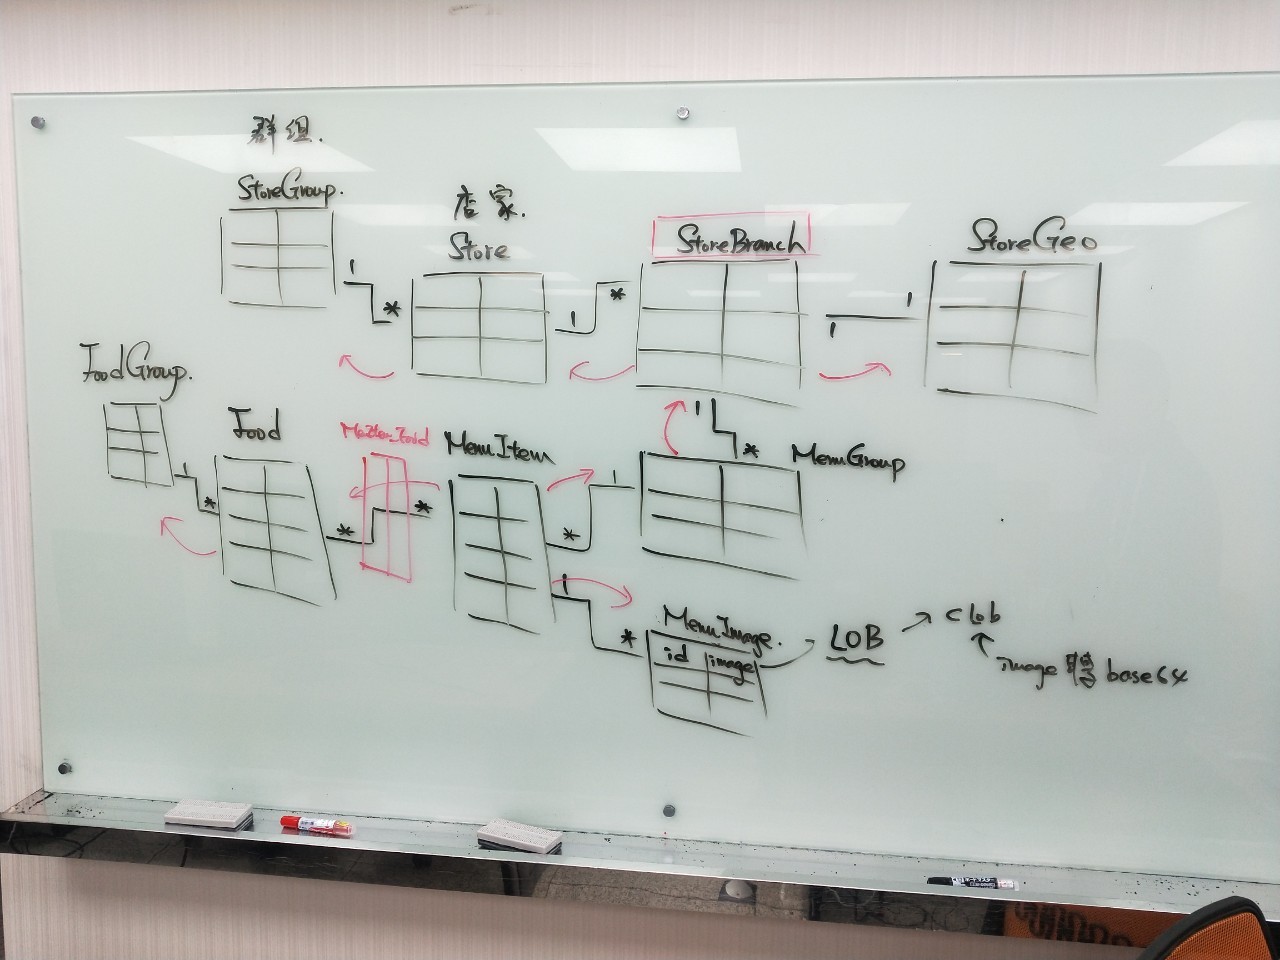 群组.
StoreGroup.
店家.
Store
StoreBranch
StoreGeo
1
*
1
*
1
1
FoodGroup.
Food
MenuItem
MenuGroup
1
*
1
*
*
*
*
1
1
*
MenuImage.
id image
LOB
Clob
image 轉 base64